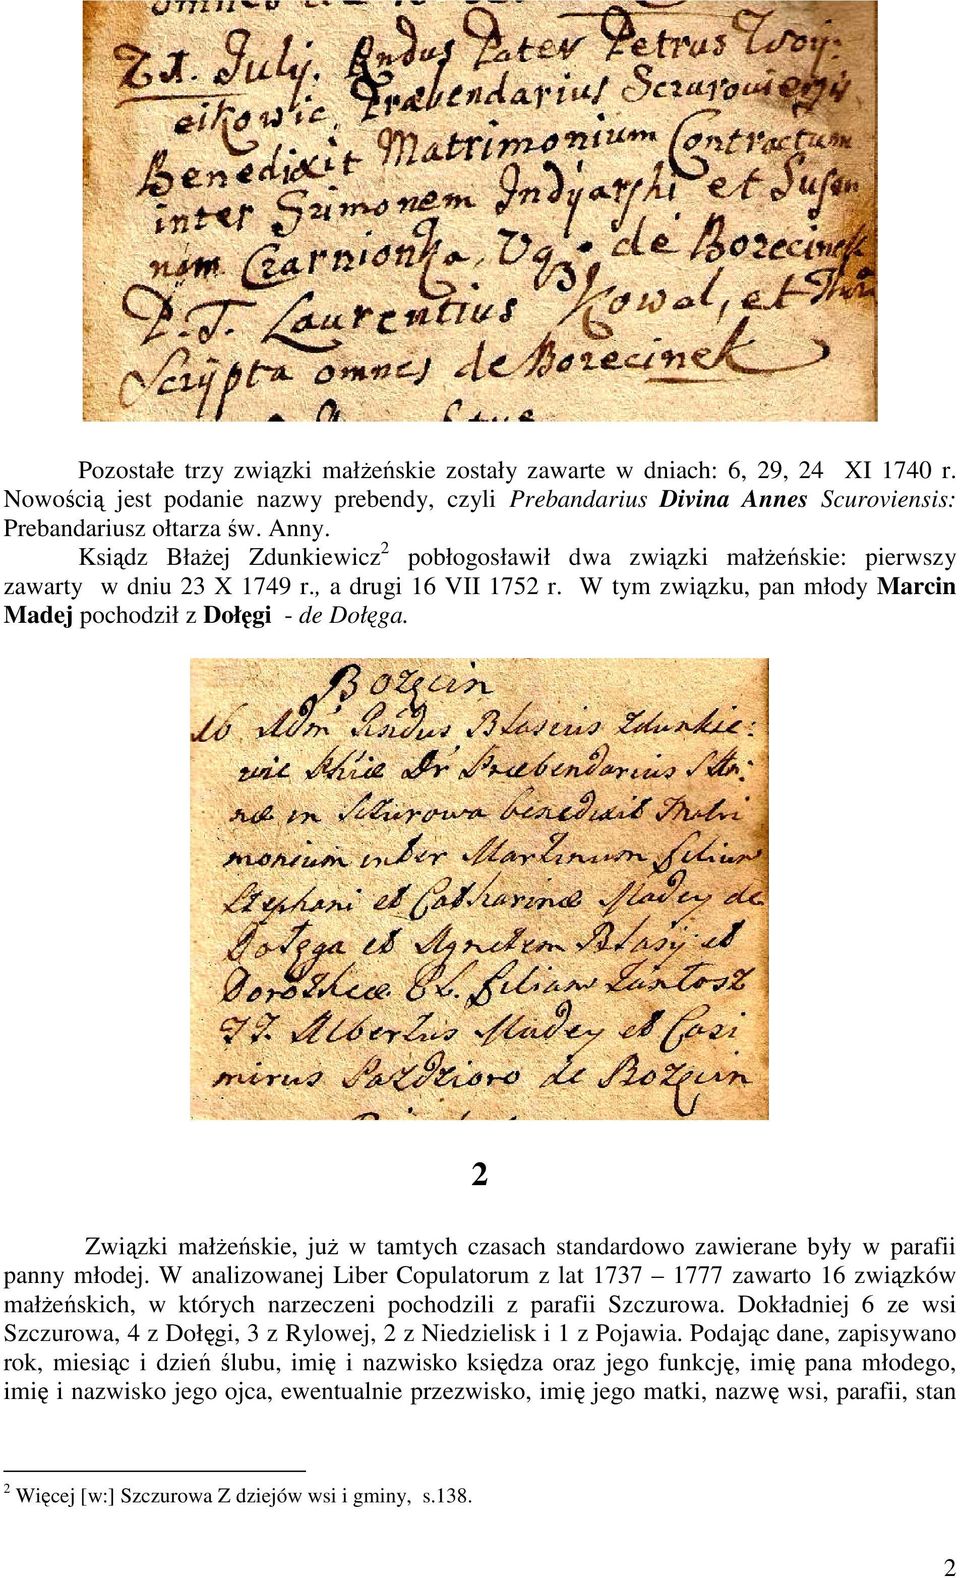 21. July. Rndus Pater Petrus Woy:
eikowic, Præbendarius Sczuroviensis
Benedixit Matrimonium Contractum
inter Szimonem Indyarski et Susan
nam Czarnionka, Vg. de Borzecinek
P.T. Laurentius Kowal, et
Scrypta omnes de Borzecinek
Pozostałe trzy związki małżeńskie zostały zawarte w dniach: 6, 29, 24 XI 1740 r.
Nowością jest podanie nazwy prebendy, czyli Prebandarius Divina Annes Scuroviensis:
Prebandariusz ołtarza św. Anny.
Ksiądz Błażej Zdunkiewicz2 pobłogosławił dwa związki małżeńskie: pierwszy
zawarty w dniu 23 X 1749 r., a drugi 16 VII 1752 r. W tym związku, pan młody Marcin
Madej pochodził z Dołęgi - de Dołęga.
Bożęcin
16 Adm Rndus Blasius Zdunkie:
wic Phiæ Dr Præbendarius S
næ in Sczurowa benedixit Matri
monium inter Martinum filium
Stephani et Catharinæ Madey de
Dołęga et Agnetem Blasy et
Dorotheæ PL. filiam Zantosz
TT. Albertus Madey et Casi
mirus Pazdzioro de Bożęcin
2
Związki małżeńskie, już w tamtych czasach standardowo zawierane były w parafii
panny młodej. W analizowanej Liber Copulatorum z lat 1737 – 1777 zawarto 16 związków
małżeńskich, w których narzeczeni pochodzili z parafii Szczurowa. Dokładniej 6 ze wsi
Szczurowa, 4 z Dołęgi, 3 z Rylowej, 2 z Niedzielisk i 1 z Pojawia. Podając dane, zapisywano
rok, miesiąc i dzień ślubu, imię i nazwisko księdza oraz jego funkcję, imię pana młodego,
imię i nazwisko jego ojca, ewentualnie przezwisko, imię jego matki, nazwę wsi, parafii, stan
2 Więcej [w:] Szczurowa Z dziejów wsi i gminy, s.138.
2